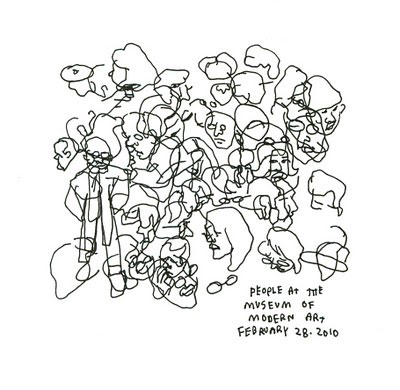 PEOPLE AT THE
MUSEUM OF
MODERN ART
FEBRUARY 28. 2010